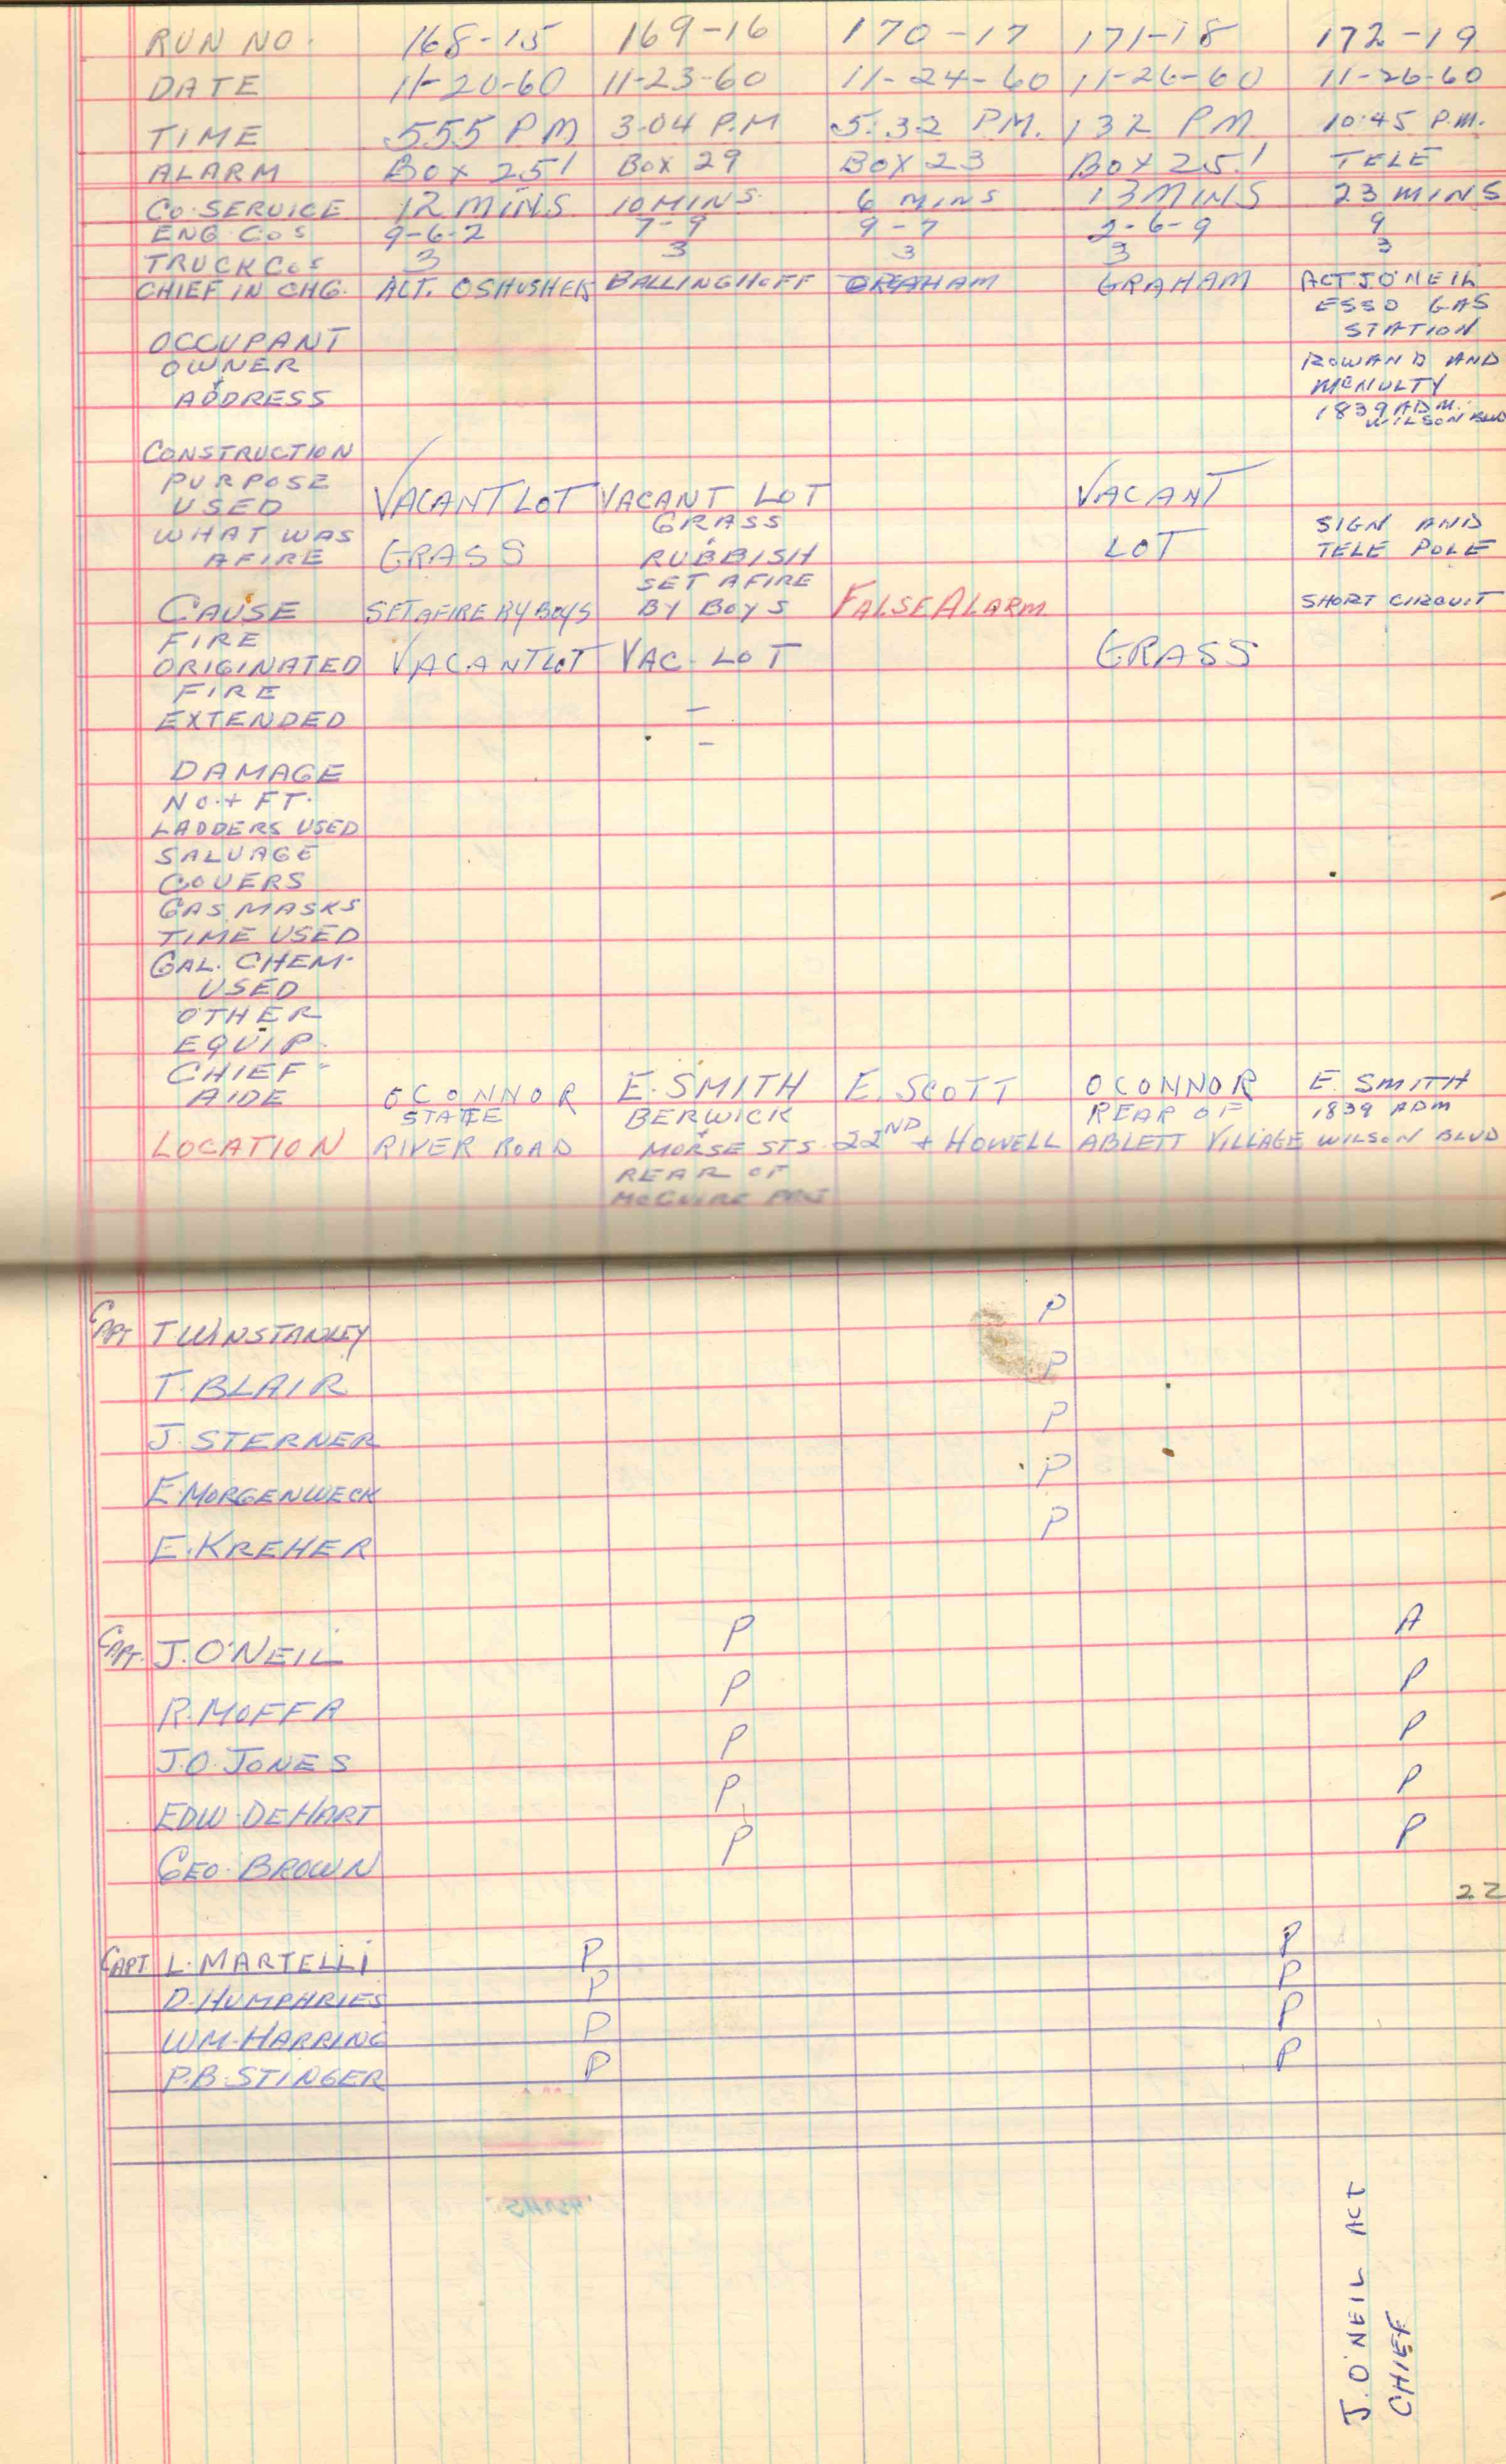 RUN NO. 168-15 169-16 170-17 171-18 172-19
DATE 11-20-60 11-23-60 11-24-60 11-26-60 11-26-60
TIME 555 PM 3-04 P.M 5:32 PM. 132 PM 10:45 P.M.
ALARM BOX 251 BOX 29 BOX 23 BOX 251 TELE
CO. SERVICE 12 MINS 10 MINS. 6 MINS 13 MINS 23 MINS
ENG COS 9-6-2 7-9 9-7 2-6-9 9
TRUCK COS 3 3 3 3 3
CHIEF IN CHG. ACT. OSHUSHEK BALLINGHOFF GRAHAM GRAHAM ACT J O'NEIL
ESSO GAS
OCCUPANT STATION
OWNER ROWAND AND
+ MCNULTY
ADDRESS 1839 ADM.
WILSON BLVD
CONSTRUCTION
PURPOSE
USED VACANT LOT VACANT LOT VACANT
WHAT WAS GRASS SIGN AND
AFIRE GRASS + RUBBISH LOT TELE POLE
SET AFIRE
CAUSE SET AFIRE BY BOYS BY BOYS FALSE ALARM SHORT CIRCUIT
FIRE
ORIGINATED VACANT LOT VAC. LOT GRASS
FIRE
EXTENDED –
–
DAMAGE
NO. + FT.
LADDERS USED
SALVAGE
COVERS
GAS MASKS
TIME USED
GAL. CHEM-
USED
OTHER
EQUIP.
CHIEF-
AIDE OCONNOR E. SMITH E. SCOTT OCONNOR E. SMITH
STATE BERWICK REAR OF 1839 ADM
LOCATION RIVER ROAD + MORSE STS. 22ND + HOWELL ABLETT VILLAGE WILSON BLVD
REAR OF
MCGUIRE PROJ
CAPT T WINSTANLEY P
T. BLAIR P
J. STERNER P
E MORGENWECK P
E. KREHER P
CAPT. J. O'NEIL P A
R. MOFFA P P
J.O. JONES P P
EDW. DEHART P P
GEO. BROWN P P
22
CAPT L. MARTELLI P P
D. HUMPHRIES P P
WM. HARRING P P
P.B. STINGER P P
J. O'NEIL ACT
CHIEF